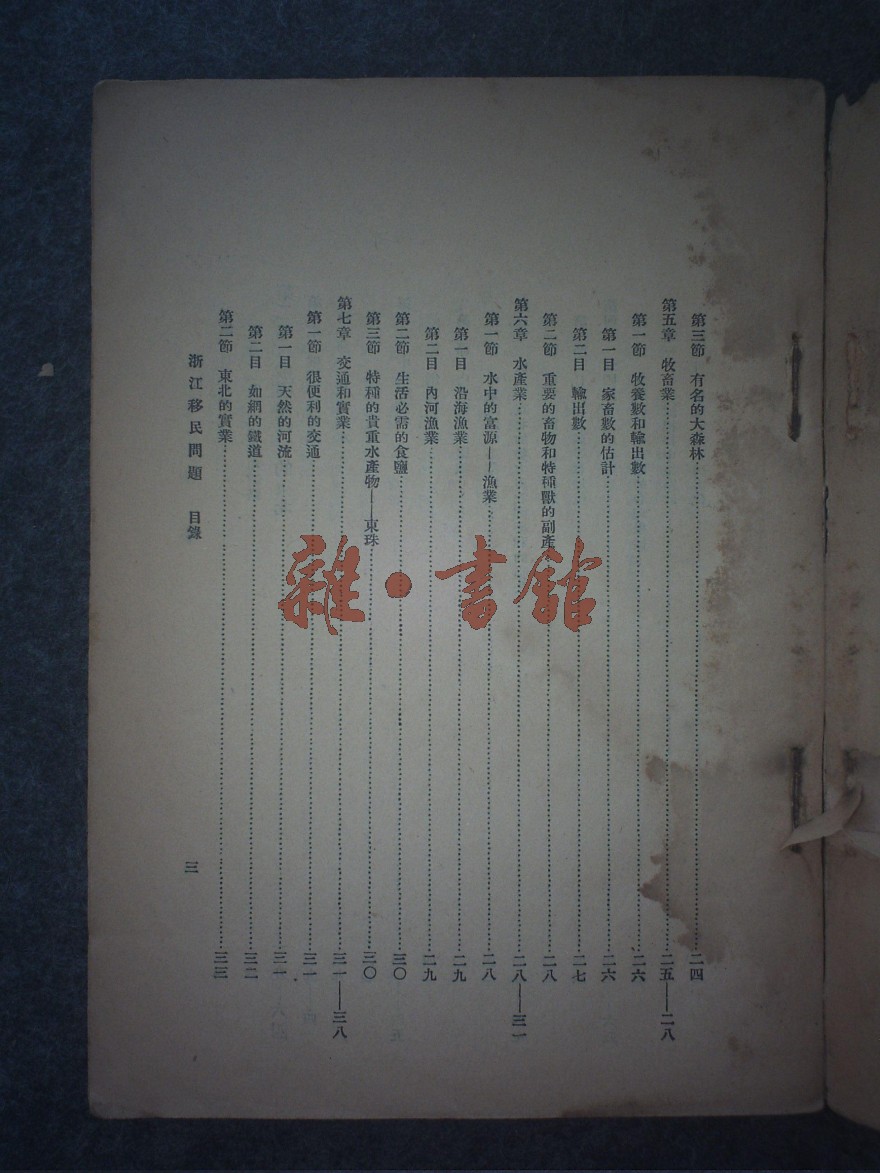 第三節 有名的大森林……二四
第五章 牧畜業……二五——二八
第一節 牧養數和輸出數……二六
第一目 家畜數的估計……二六
第二目 輸出數……二七
第二節 重要的畜物和特種獸的副產……二八
第六章 水產業……二八——三一
第一節 水中的富源——漁業……二八
第一目 沿海漁業……二九
第二目 內河漁業……二九
第二節 生活必需的食鹽……三〇
第三節 特種的貴重水產物——東珠……三〇
第七章 交通和實業……三一——三八
第一節 很便利的交通……三一
第一目 天然的河流……三一
第二目 如網的鐵道……三二
第二節 東北的實業……三三
浙江移民問題 目錄
三
雜·書館